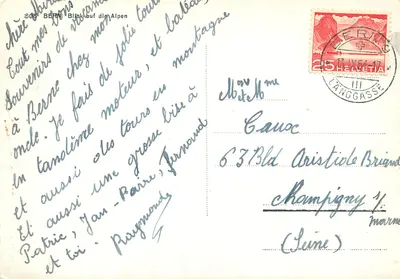 BERN Blick auf die Alpen
Tout mes
Souvenirs de vacances
à Berne chez mon
oncle. Je fais de jolie
en tandème moteur, et
et aussi des tours en montagne
Et aussi une grosse bise à
Patric, Jan-Parre, Fernand
et toi. Raymonde
BERN 2
III
LÄNGGASSE
25 HELVETIA
Mr et Mme
Caux
63 Bld Aristide Briand
Champigny s/
marne
(Seine)